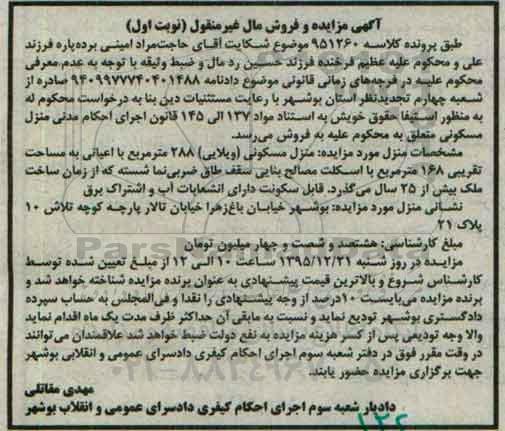 آگهی مزایده و فروش مال غیرمنقول (نوبت اول)
طبق پرونده کلاسه ۹۵۱۲۶۰ موضوع شکایت آقای حاجت‌مراد امینی برده‌پاره فرزند
علی و محکوم علیه عظیم فرخنده فرزند حسین رد مال و ضبط وثیقه با توجه به عدم معرفی
محکوم علیه در فرجه‌های زمانی قانونی موضوع دادنامه ۹۴۰۹۹۷۷۷۴۰۴۰۱۴۸۸ صادره از
شعبه چهارم تجدیدنظر استان بوشهر با رعایت مستثنیات دین بنا به درخواست محکوم له
به منظور استیفا حقوق خویش به استناد مواد ۱۳۷ الی ۱۴۵ قانون اجرای احکام مدنی منزل
مسکونی متعلق به محکوم علیه به فروش می‌رسد.
مشخصات منزل مورد مزایده: منزل مسکونی (ویلایی) ۲۸۸ مترمربع با اعیانی به مساحت
تقریبی ۱۶۸ مترمربع با اسکلت مصالح بنایی سقف طاق ضربی‌نما شسته که از زمان ساخت
ملک بیش از ۲۵ سال می‌گذرد. قابل سکونت دارای انشعابات آب و اشتراک برق
نشانی منزل مورد مزایده: بوشهر خیابان باغ‌زهرا خیابان تالار پارچه کوچه تلاش ۱۰
پلاک ۲۱
مبلغ کارشناسی: هشتصد و شصت و چهار میلیون تومان
مزایده در روز شنبه ۱۳۹۵/۱۲/۲۱ ساعت ۱۰ الی ۱۲ از مبلغ تعیین شده توسط
کارشناس شروع و بالاترین قیمت پیشنهادی به عنوان برنده مزایده شناخته خواهد شد و
برنده مزایده می‌بایست ۱۰درصد از وجه پیشنهادی را نقدا و فی‌المجلس به حساب سپرده
دادگستری بوشهر تودیع نماید و نسبت به مابقی آن حداکثر ظرف مدت یک ماه اقدام نماید
والا وجه تودیعی پس از کسر هزینه مزایده به نفع دولت ضبط خواهد شد علاقمندان می‌توانند
در وقت مقرر فوق در دفتر شعبه سوم اجرای احکام کیفری دادسرای عمومی و انقلابی بوشهر
جهت برگزاری مزایده حضور یابند.
مهدی مقاتلی
دادیار شعبه سوم اجرای احکام کیفری دادسرای عمومی و انقلاب بوشهر